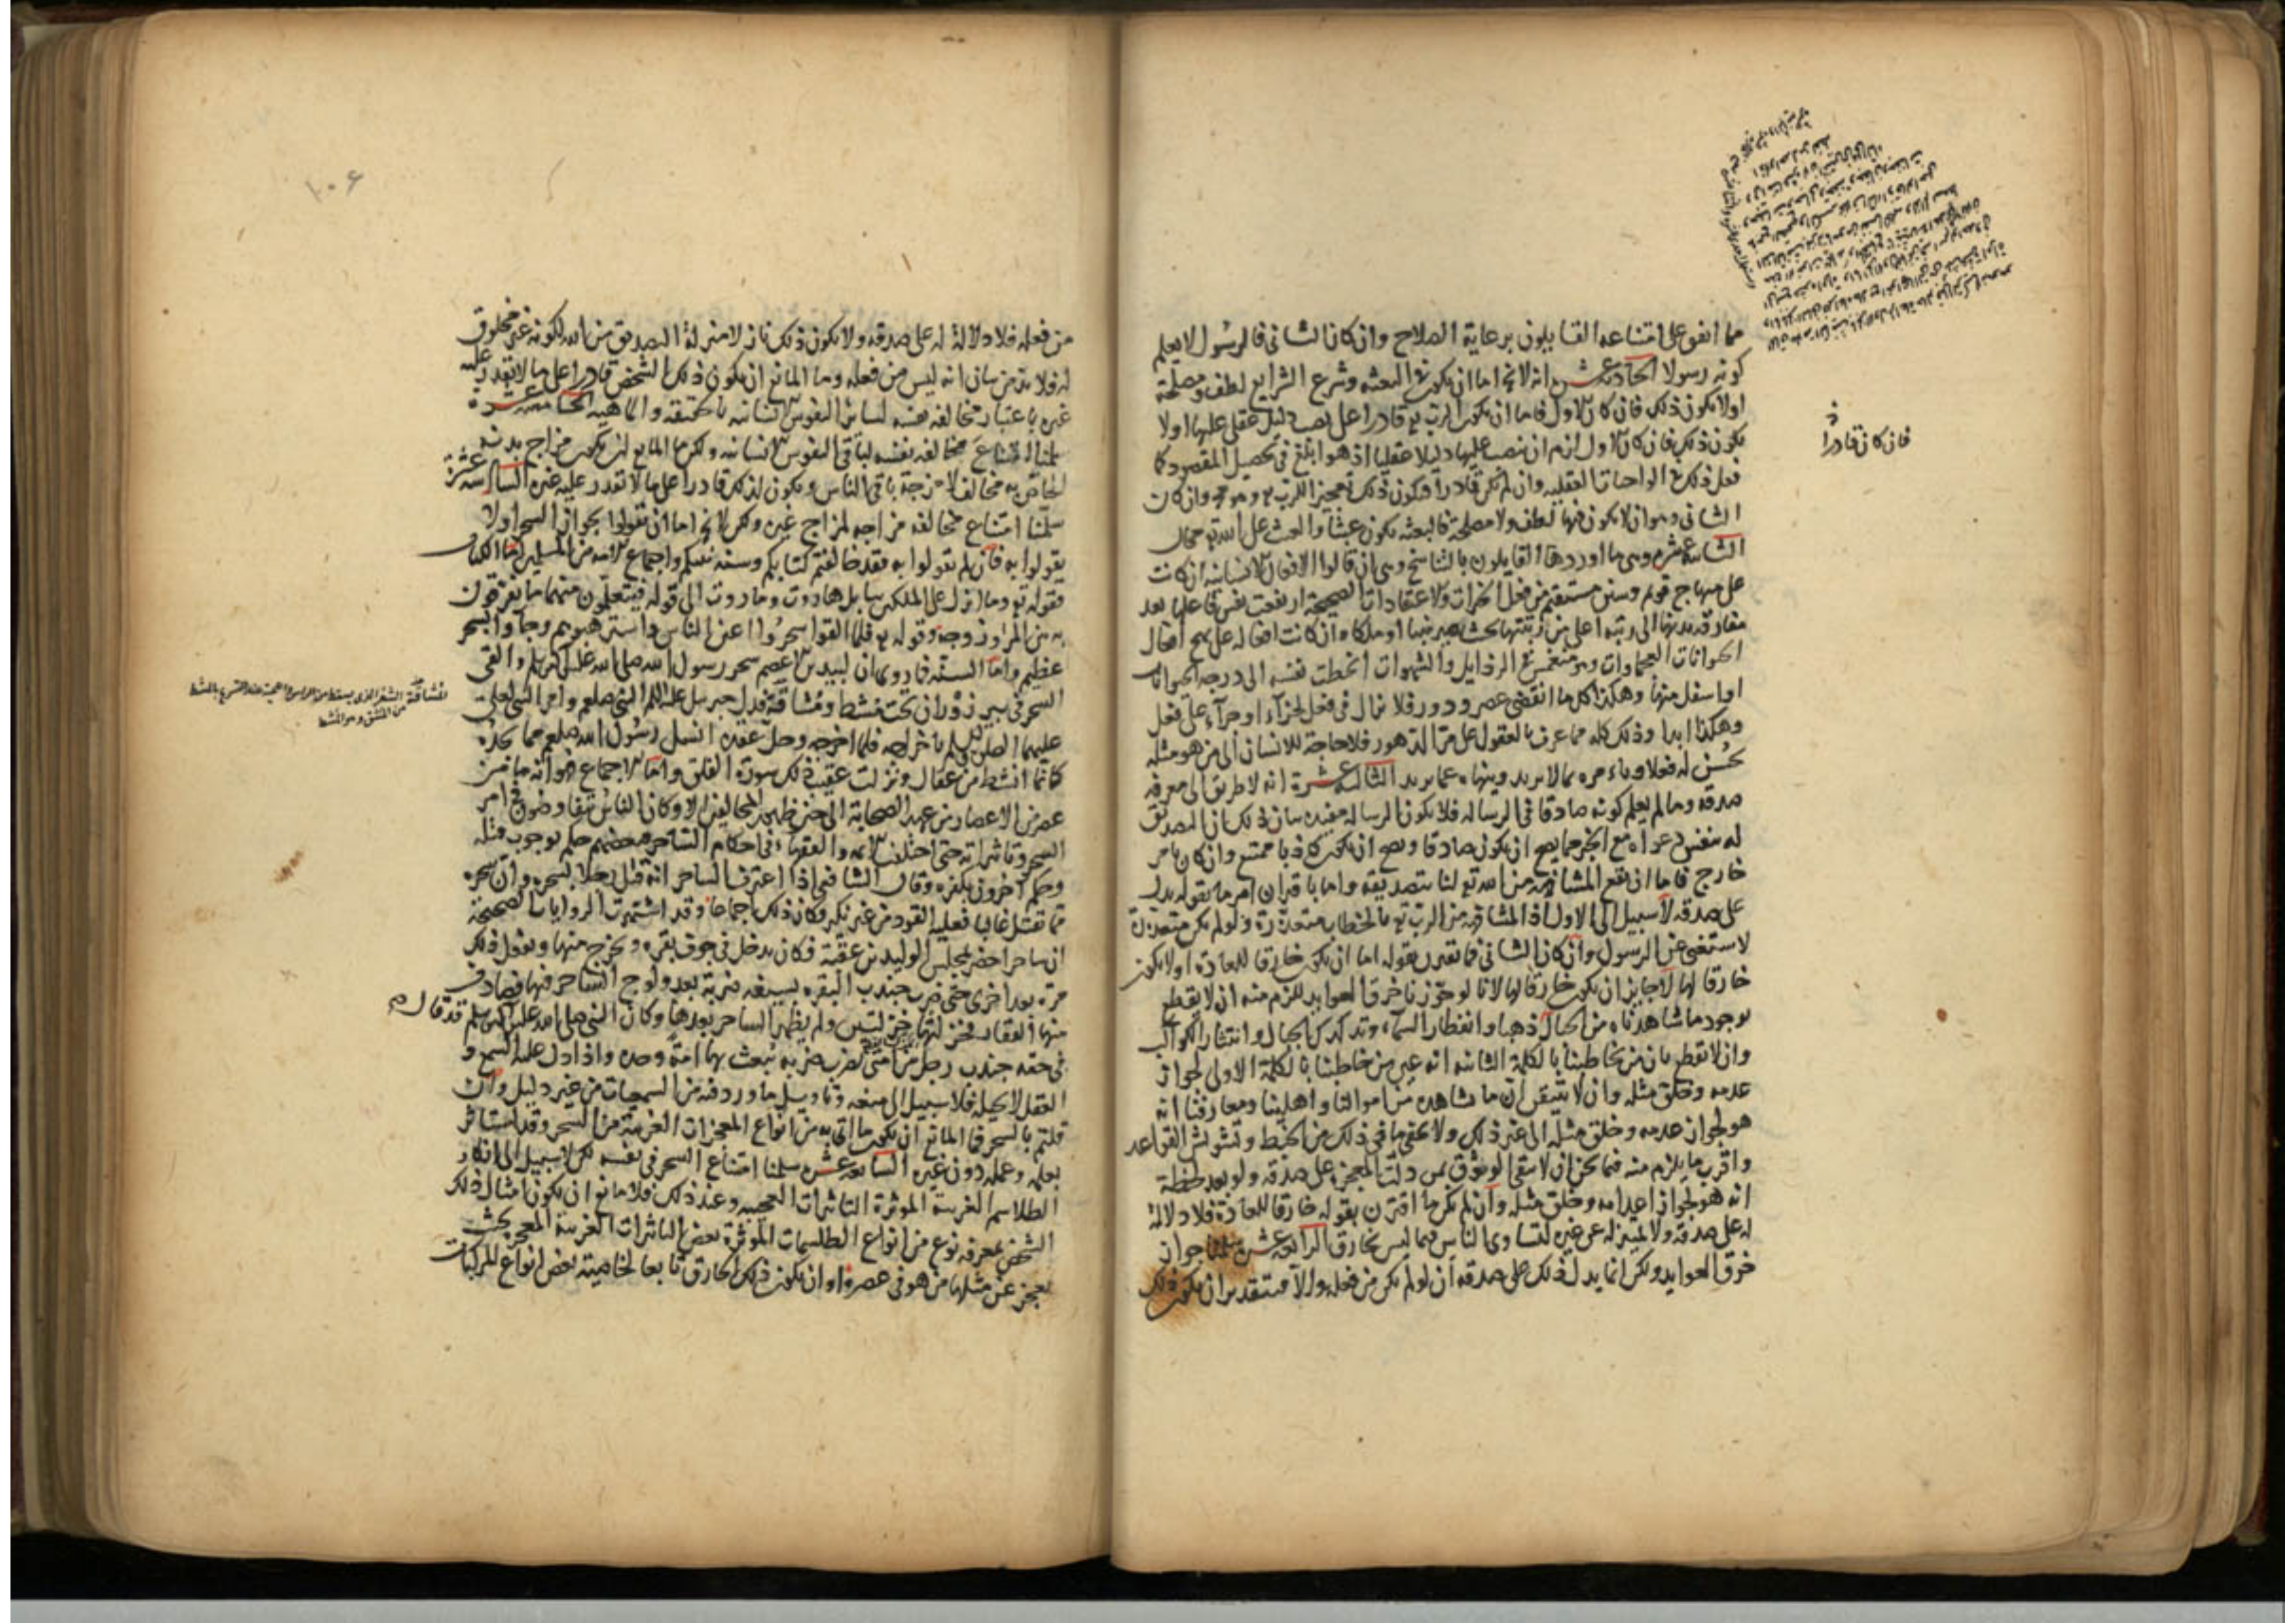 مما اتفق على امتناعه القايلون برعاية الصلاح وان كان الثاني فالرسول لا يعلم
كونه رسولا الحادية عشر انه لا يخ اما ان يكون في البعثة وشرع الشرايع لطف ومصلحة
اولا يكون ذلك فان كان الاول فاما ان يكون الرب تع قادرا على نصب دليل عقلي عليها اولا
يكون ذلك فان كان الاول لزم ان ينصب عليها دليلا عقليا اذ هو ابلغ في تحصيل المقصود كما
فعل ذلك في الواجبات العقليه وان لم يكن قادرا فيكون ذلك تعجيزا للرب تع وهو مح وان كان
الثاني وهو ان لا يكون فيها لطف ولا مصلحة فالبعثة يكون عبثا والعبث على الله تع محال
الثانية عشر وهي ما اوردها القايلون بالتناسخ وهي ان قالوا الافعال الانسانية ان كانت
على منهاج قويم وسنن مستقيم من فعل الخيرات والاعتقادات الصحيحة ارتفعت نفس فاعلها بعد
مفارقة بدنها الى رتبة اعلى من رتبتها بحيث يصير نبيا او ملكا وان كانت افعاله على نهج افعال
الحيوانات العجماوات وهو منغمس في الرذايل والشهوات انحطت نفسه الى درجة الحيوانات
او اسفل منها وهكذا كلما انقضى عصر ودور فلا يزال في فعل لجزاء او جزاء على فعل
وهكذا ابدا وذلك كله مما عرف بالعقول على مر الدهور فلا حاجة للانسان الى من هو مثله
يحسن له فعلا وياءمره بما لا يريد وينهاه عما يريد الثالثة عشرة انه لا طريق الى معرفة
صدقه وما لم يعلم كونه صادقا في الرسالة فلا يكون الرسالة مفيدة بيان ذلك ان التصديق
له بنفس دعواه مع الخبر مما يصح ان يكون صادقا ويصح ان يكون كاذبا ممتنع وان كان بامر
خارج فاما ان يقع المشافهة من الله تع لنا بتصديقه واما باقتران امر ما بقوله يدل
على صدقه لا سبيل الى الاول اذ المشافهة من الرب تع بالخطاب متعذرة ولو لم يكن متعذرة
لاستغنى عن الرسول وان كان الثاني فما تقترن بقوله اما ان يكون خارقا للعادة اولا يكون
خارقا لها لا جايز ان يكون خارقا لها لانا لو جوزنا خرق العوايد للزم منه ان لا نقطع
بوجود ما شاهدناه من الجبال ذهبا وانفطار السماء وتدكدك الجبال وانتثار الكواكب
وان لا نقطع بان من يخاطبنا بالكلمة الثانية انه عين من خاطبنا بالكلمة الاولى لجواز
عدمه وخلق مثله وان لا نتيقن ان ما نشاهده من اموالنا واهلينا ومعارفنا انه
هو لجواز عدمه وخلق مثله الى غير ذلك ولا يخفى ما في ذلك من الخبط وتشويش القواعد
واقرب ما يلزم منه فيما نحن ان لا يبقى الوثوق بمن دلت المعجزة على صدقه ولو بعد لحظة
انه هو لجواز اعدامه وخلق مثله وان لم يكن ما اقترن بقوله خارقا للعادة فلا دلالة
له على صدقه ولا تمييز له عن غيره لتساوي الناس فيما ليس بخارق الرابعة عشر سلمنا جواز
خرق العوايد ولكن انما يدل ذلك على صدقه ان لو لم يكن من فعله والا فبتقدير ان يكون ذلك
فان كان قادرا
١٠٦
من فعله فلا دلالة له على صدقه ولا يكون ذلك نازلا منزلة التصديق من الله لكونه غير مخلوق
له فلا بد من بيان انه ليس من فعله وما المانع ان يكون ذلك الشخص قادرا على ما لا يقدر عليه
غيره باعتبار مخالفة نفسه لسائر النفوس الانسانية بالحقيقة والماهية الخامسة عشرة
سلمنا امتناع مخالفة نفسه لباقي النفوس الانسانية ولكن ما المانع ان يكون مزاج بدنه
الخاص به مخالفا لامزجة باقي الناس ويكون لذلك قادرا على ما لا تقدر عليه غيره السادسة عشرة
سلمنا امتناع مخالفة مزاجه لمزاج غيره ولكن لا يخ اما ان تقولوا بجواز السحر اولا
يقولوا به فان لم يقولوا به فقد خالفتم كتابكم وسنة نبيكم واجماع الامة من المسلمين اما الكتاب
فقوله تع وما انزل على الملكين ببابل هاروت وماروت الى قوله فيتعلمون منهما ما يفرقون
به بين المرء وزوجه وقوله تع فلما القوا سحروا اعين الناس واسترهبوهم وجاؤا بسحر
عظيم واما السنة فما روي ان لبيد بن الاعصم سحر رسول الله صلى الله عليه وسلم والقى
السحر في بير ذروان تحت مشط ومشاقة فدل جبريل عليه السلم النبي صلعم وامر النبي لعلي
عليهما الصلوة والسلم باخراجه فلما اخرجه وحل عقده انسل رسول الله صلعم مما يجده
كانما انشط من عقال ونزلت عقيب ذلك سورة الفلق واما الاجماع فهو انه ما من
عصر من الاعصار من عهد الصحابة الى حين ظهور المخالفين الا وكان الناس يتفاوضون في امر
السحر وتاثيراته حتى اختلف الايمة والفقهاء في احكام الساحر فبعضهم حكم بوجوب قتله
وحكم آخرون بكفره وقال الشافعي اذا اعترف الساحر انه قتل رجلا بسحره وان سحره
مما تقتل غالبا فعليه القود من غير نكير وكان ذلك اجماعا وقد اشتهرت الروايات الصحيحة
ان ساحرا حضر مجلس الوليد بن عقبة فكان يدخل في جوف بقره ويخرج منها ويفعل ذلك
مرة بعد اخرى حتى ضرب جندب البقره بسيفه ضربة بعد ولوج الساحر فيها فصادف
منها الفقار فخزلتها خزلتين ولم يظهر الساحر بعدها وكان النبي صلى الله عليه وسلم قد قال
في حقه جندب رجل من امتي يضرب ضربة يبعث بها امة وحده واذا دل عليه السمع و
العقل لا يحيله فلا سبيل الى منعه وتاويل ما ورد فيه من السمعيات من غير دليل وان
قلتم بالسحر فما المانع ان يكون ما اتى به من انواع المعجزات الغريبة من السحر وقد استاثر
بعلمه وعمله دون غيره السابعة عشر سلمنا امتناع السحر في نفسه لكن لا سبيل الى انكار
الطلاسم الغريبة الموثرة التاثيرات العجيبه وعند ذلك فلا مانع ان يكون امثال ذلك
الشخص بمعرفة نوع من انواع الطلسمات الموثرة بعض التاثيرات الغريبة المعجزة بحيث
يعجز عن مثلها من هو في عصره او ان يكون ذلك الخارق تابعا لخاصية بعض انواع المركبات
المشاقة الشعر الذي يسقط من الراس واللحية عند التسريح بالمشط
من المشق وهو المشط